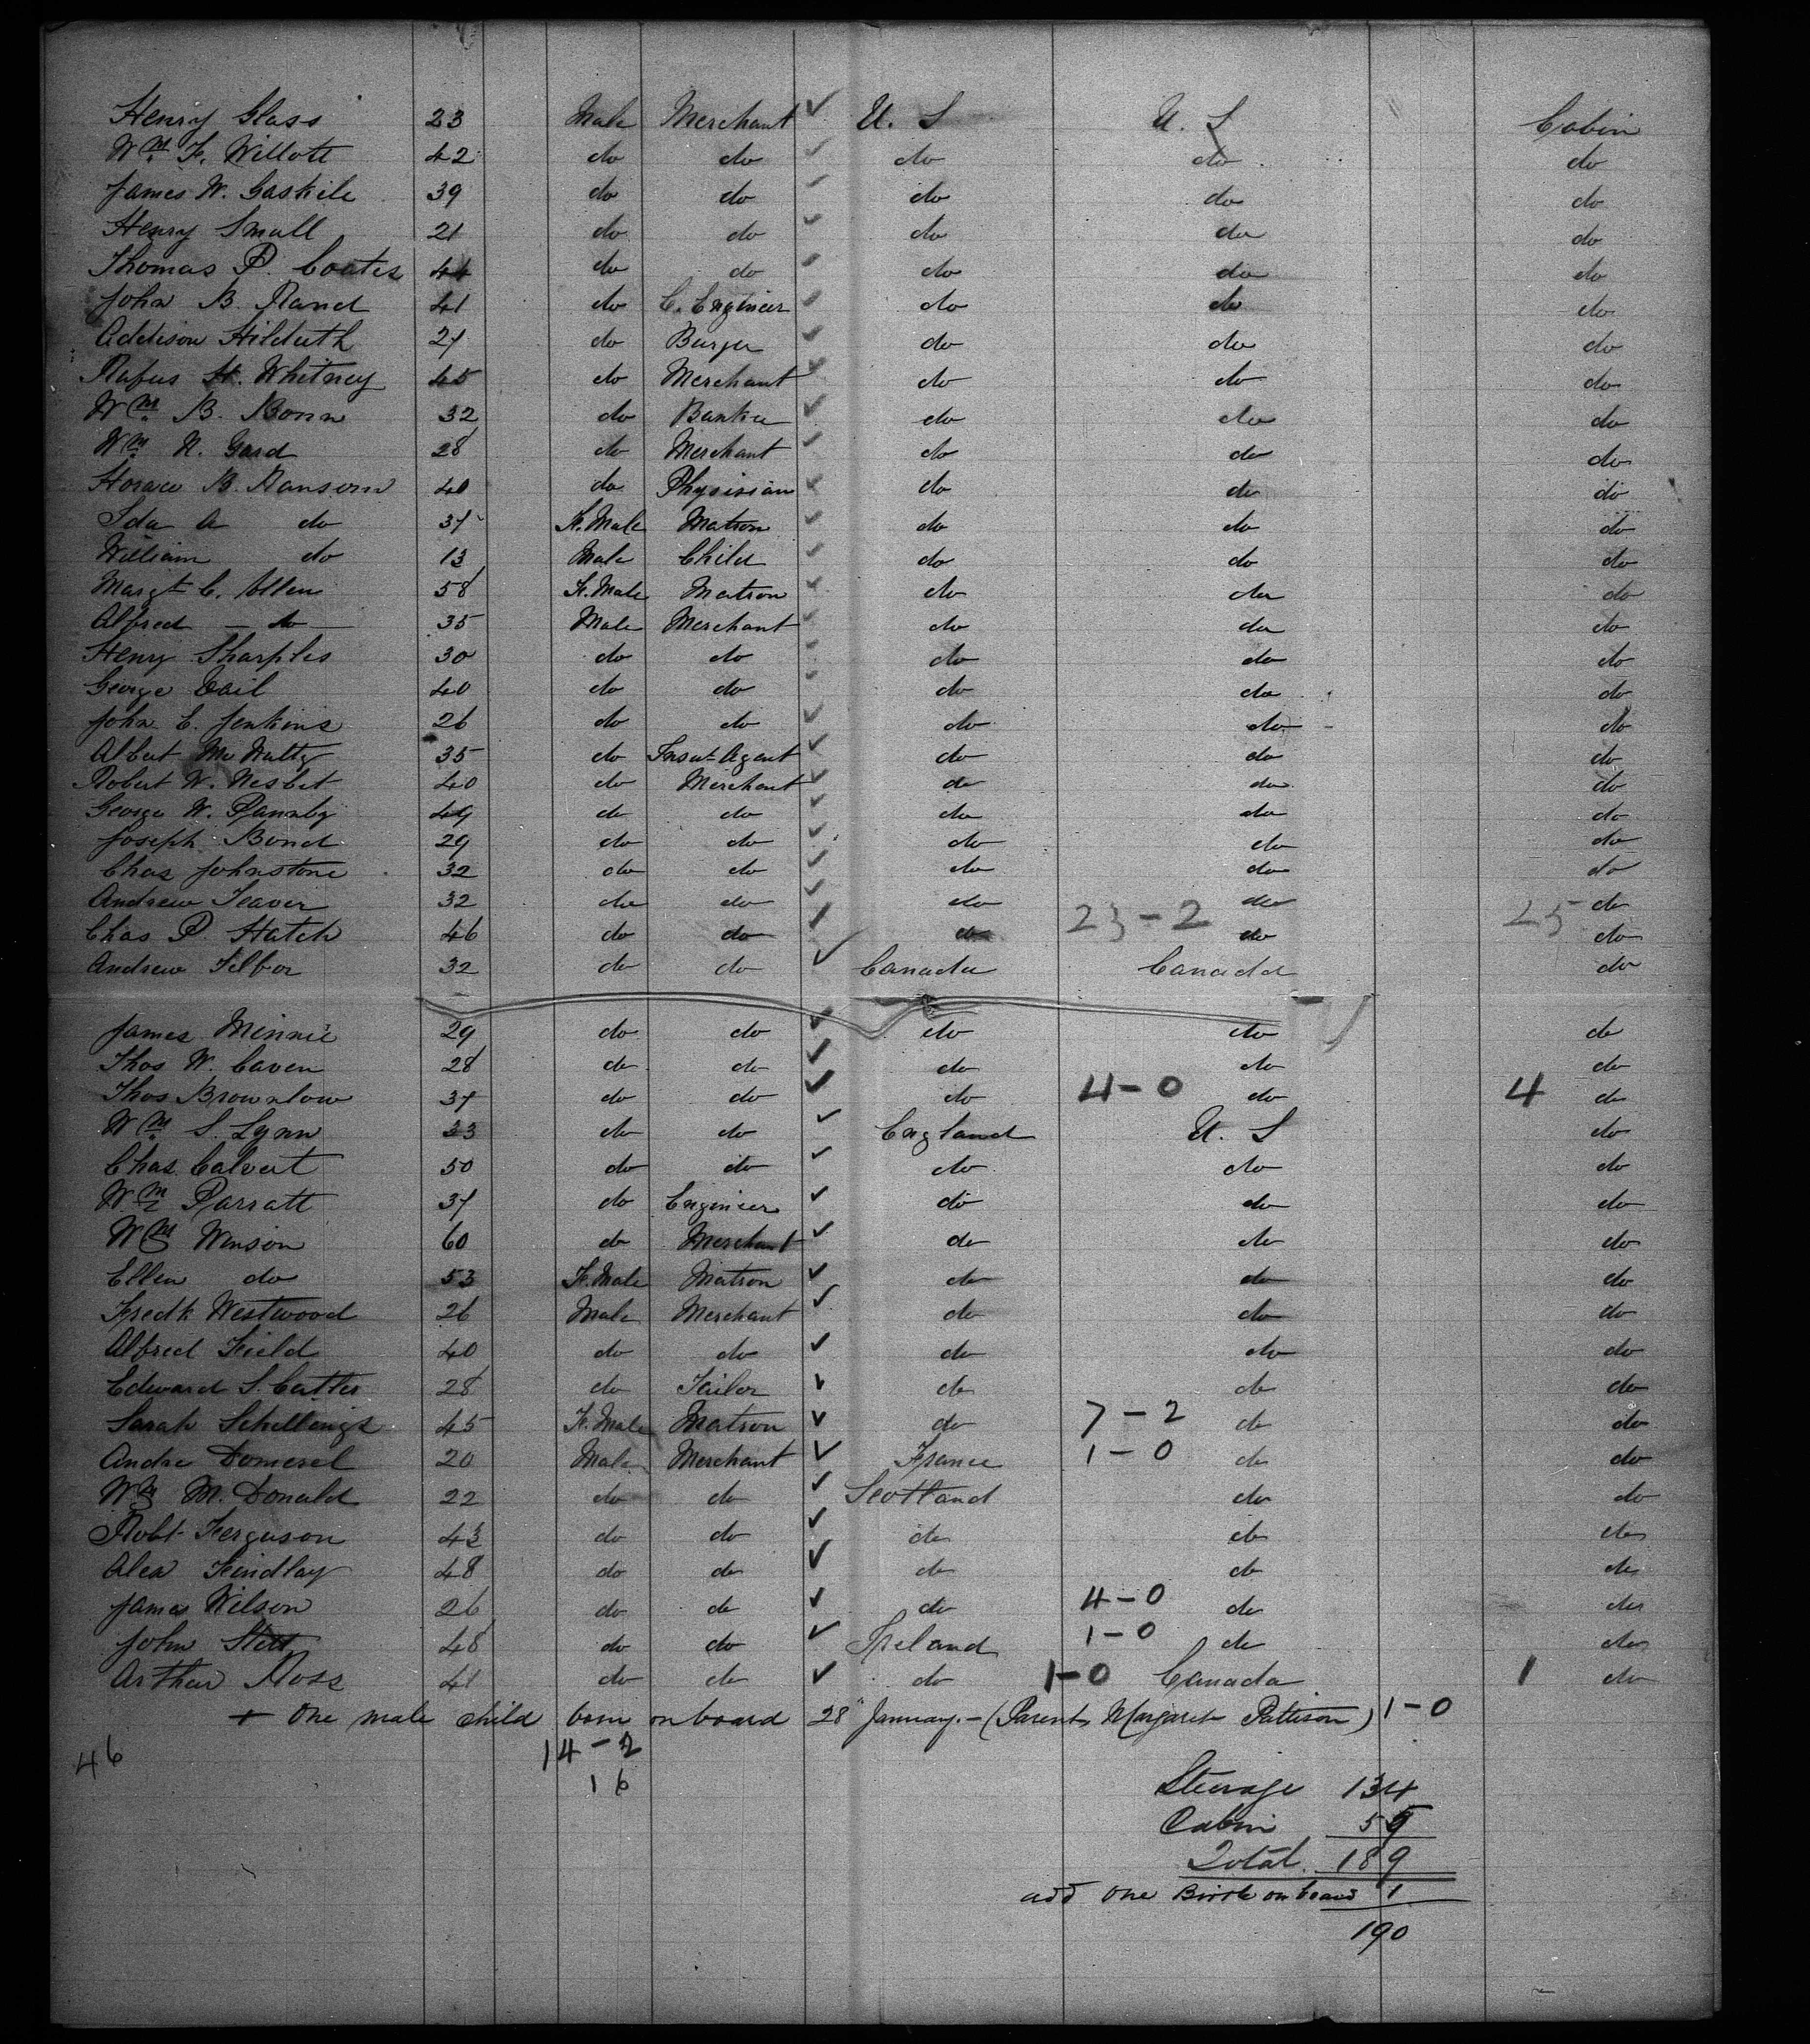 Henry Glass 23 Male Merchant ✓ U. S U. S Cabin
Wm. F. Willott 42 do do ✓ do do do
James W. Gaskile 39 do do ✓ do do do
Henry Small 21 do do ✓ do do do
Thomas P. Coates 44 do do ✓ do do do
John B. Rand 41 do C. Engineer ✓ do do do
Addison Hilduth 27 do ✓ do do do
Rufus H. Whitney 45 do Merchant ✓ do do do
Wm. B. Bonn 32 do Banker ✓ do do do
Wm. N. Gard 28 do Merchant ✓ do do do
Horace B. Ransom 40 do Physician ✓ do do do
Ida A do 37 Fe.Male Matron ✓ do do do
William do 13 Male Child ✓ do do do
Margt C. Allen 58 Fe.Male Matron ✓ do do do
Alfred — do — 35 Male Merchant ✓ do do do
Henry Sharples 30 do do ✓ do do do
George Cail 40 do do ✓ do do do
John E. Jenkins 26 do do ✓ do do do
Albert 35 do Insu. Agent ✓ do do do
Robert W. Nesbet 40 do Merchant ✓ do do do
George W. 49 do do ✓ do do do
Joseph Bond 29 do do ✓ do do do
Chas Johnstone 32 do do ✓ do do do
Andrew Seaver 32 do do ✓ do do do
Chas P. Hatch 46 do do ✓ do 23-2 do 25 do
Andrew Telfer 32 do do ✓ Canada Canada do
James Minnie 29 do do ✓ do do do
Thos W. Caven 28 do do ✓ do do do
Thos Brownlow 37 do do ✓ do 4-0 do 4 do
Wm. S. Lynn 33 do do ✓ England U. S do
Chas Calvert 50 do do ✓ do do do
Wm Parratt 37 do Engineer ✓ do do do
Wm Winson 60 do Merchant ✓ do do do
Ellen do 53 Fe.Male Matron ✓ do do do
Fredk Westwood 26 Male Merchant ✓ do do do
Alfred Field 40 do do ✓ do do do
Edward S. Cutter 28 do Tailor ✓ do do do
Sarah Schellings 45 Fe.Male Matron ✓ do 7-2 do do
Andre Domerel 20 Male Merchant ✓ France 1-0 do do
Wm M. Donald 22 do do ✓ Scotland do do
Robt Ferguson 43 do do ✓ do do do
Alex Findlay 48 do do ✓ do do do
James Wilson 26 do do ✓ do 4-0 do do
John Stitt 48 do do ✓ Ireland 1-0 do do
Arthur Ross 41 do do ✓ do 1-0 Canada 1 do
+ One male child born on board 28" January. - (Parent, Margaret Pattison) 1-0
46 14-2
16
Steerage 134
Cabin 55
Total 189
add one Birth on board 1
190